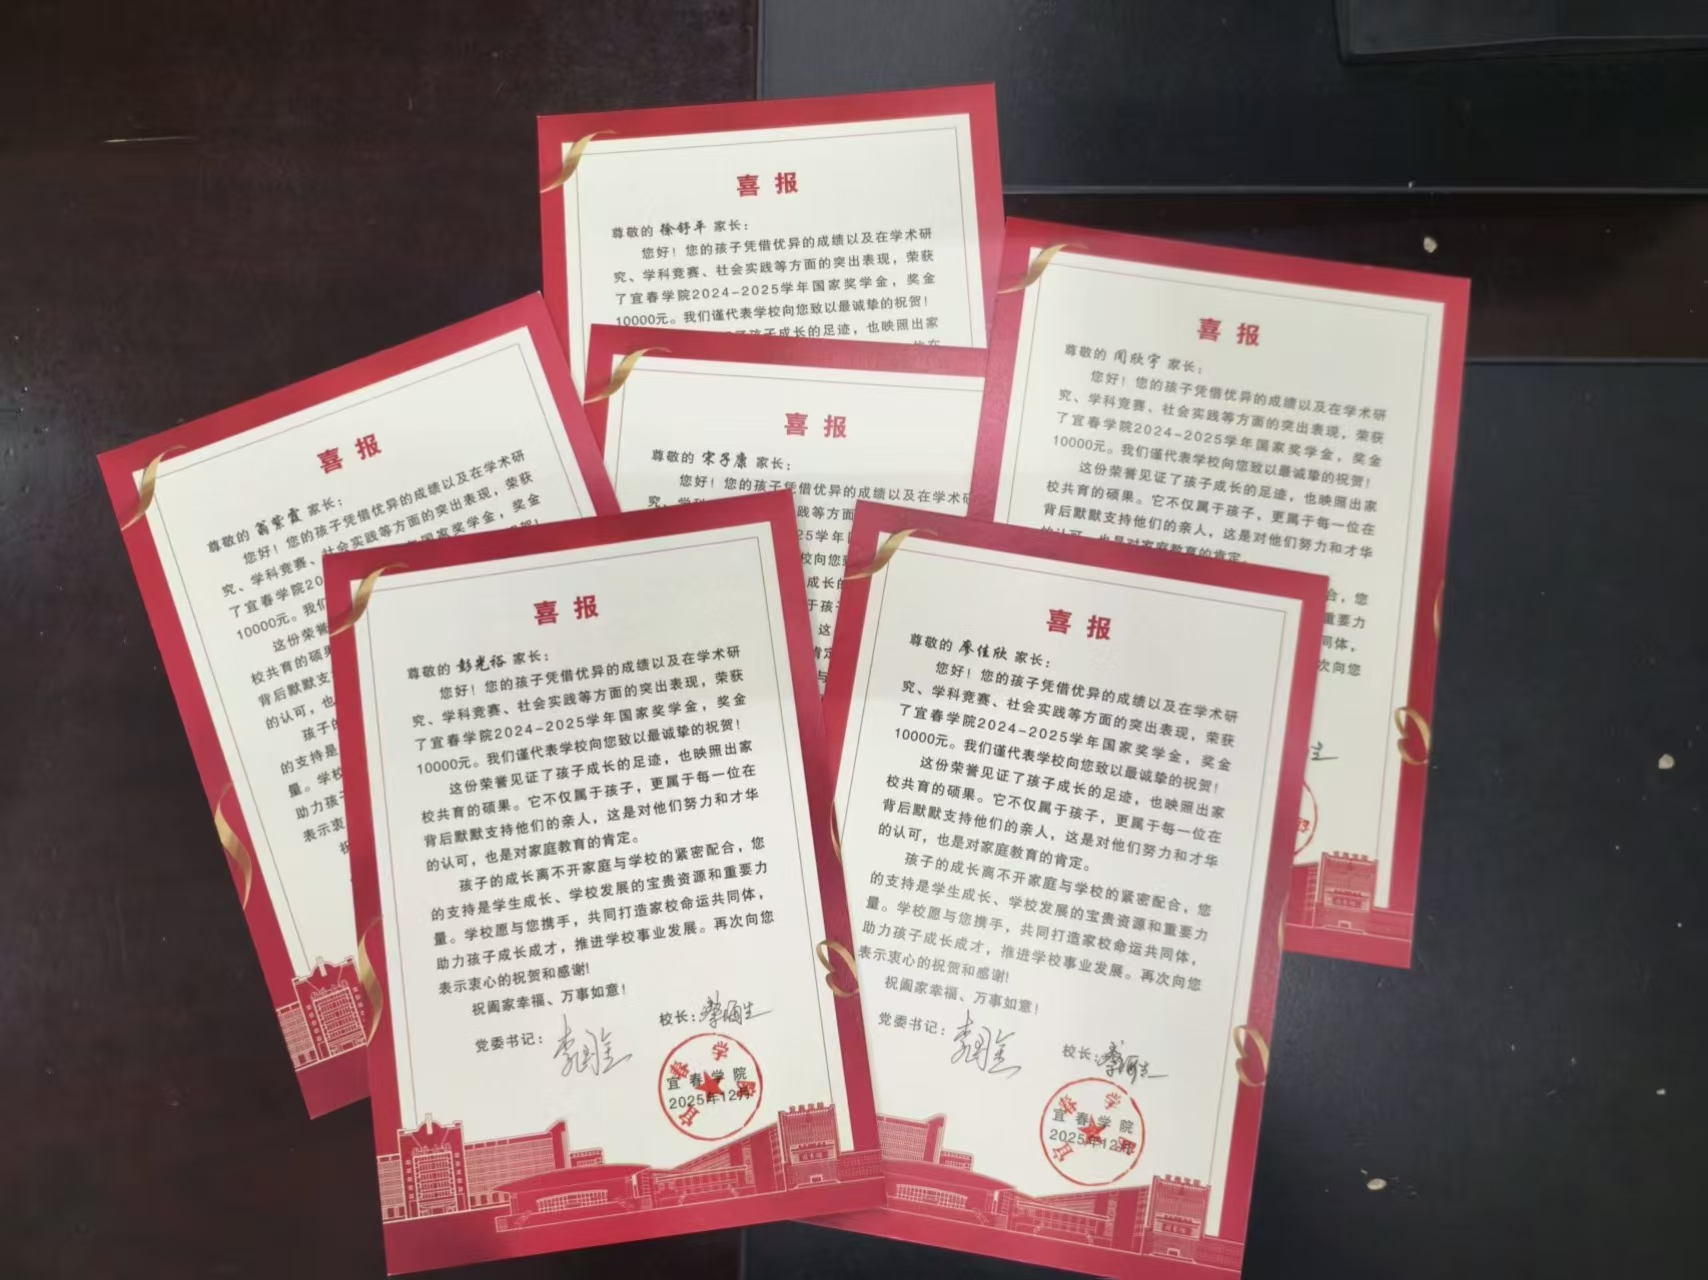 喜报
尊敬的 徐舒平 家长：
您好！您的孩子凭借优异的成绩以及在学术研
究、学科竞赛、社会实践等方面的突出表现，荣获
了宜春学院2024-2025学年国家奖学金，奖金
10000元。我们谨代表学校向您致以最诚挚的祝贺！
了孩子成长的足迹，也映照出家
喜报
尊敬的 闻欣宇 家长：
您好！您的孩子凭借优异的成绩以及在学术研
究、学科竞赛、社会实践等方面的突出表现，荣获
了宜春学院2024-2025学年国家奖学金，奖金
10000元。我们谨代表学校向您致以最诚挚的祝贺！
这份荣誉见证了孩子成长的足迹，也映照出家
校共育的硕果。它不仅属于孩子，更属于每一位在
背后默默支持他们的亲人，这是对他们努力和才华
的认可，也是对家庭教育的肯定。
合，您
重要力
同体，
次向您
喜报
尊敬的 宋子康 家长：
您好！您的孩子凭借优异的成绩以及在学术研
究、学科
践等方面
25学年
校向您致
成长的
于孩子
这
肯定
与
喜报
尊敬的 翁紫霞 家长：
您好！您的孩子凭借优异的成绩以及在学术研
究、学科竞赛、社会实践等方面的突出表现，荣获
了宜春学院20 国家奖学金，奖金
10000元。我们 祝贺！
这份荣誉
校共育的硕果
背后默默支持
的认可，也
孩子的
的支持是
量。学校
助力孩子
表示衷
祝
喜报
尊敬的 彭光裕 家长：
您好！您的孩子凭借优异的成绩以及在学术研
究、学科竞赛、社会实践等方面的突出表现，荣获
了宜春学院2024-2025学年国家奖学金，奖金
10000元。我们谨代表学校向您致以最诚挚的祝贺！
这份荣誉见证了孩子成长的足迹，也映照出家
校共育的硕果。它不仅属于孩子，更属于每一位在
背后默默支持他们的亲人，这是对他们努力和才华
的认可，也是对家庭教育的肯定。
孩子的成长离不开家庭与学校的紧密配合，您
的支持是学生成长、学校发展的宝贵资源和重要力
量。学校愿与您携手，共同打造家校命运共同体，
助力孩子成长成才，推进学校事业发展。再次向您
表示衷心的祝贺和感谢!
祝阖家幸福、万事如意！
党委书记：
校长：
宜春学院
宜春学院
2025年12月
喜报
尊敬的 廖佳欣 家长：
您好！您的孩子凭借优异的成绩以及在学术研
究、学科竞赛、社会实践等方面的突出表现，荣获
了宜春学院2024-2025学年国家奖学金，奖金
10000元。我们谨代表学校向您致以最诚挚的祝贺！
这份荣誉见证了孩子成长的足迹，也映照出家
校共育的硕果。它不仅属于孩子，更属于每一位在
背后默默支持他们的亲人，这是对他们努力和才华
的认可，也是对家庭教育的肯定。
孩子的成长离不开家庭与学校的紧密配合，您
的支持是学生成长、学校发展的宝贵资源和重要力
量。学校愿与您携手，共同打造家校命运共同体，
助力孩子成长成才，推进学校事业发展。再次向您
表示衷心的祝贺和感谢!
祝阖家幸福、万事如意！
党委书记：
校长：
宜春学院
宜春学院
2025年12月